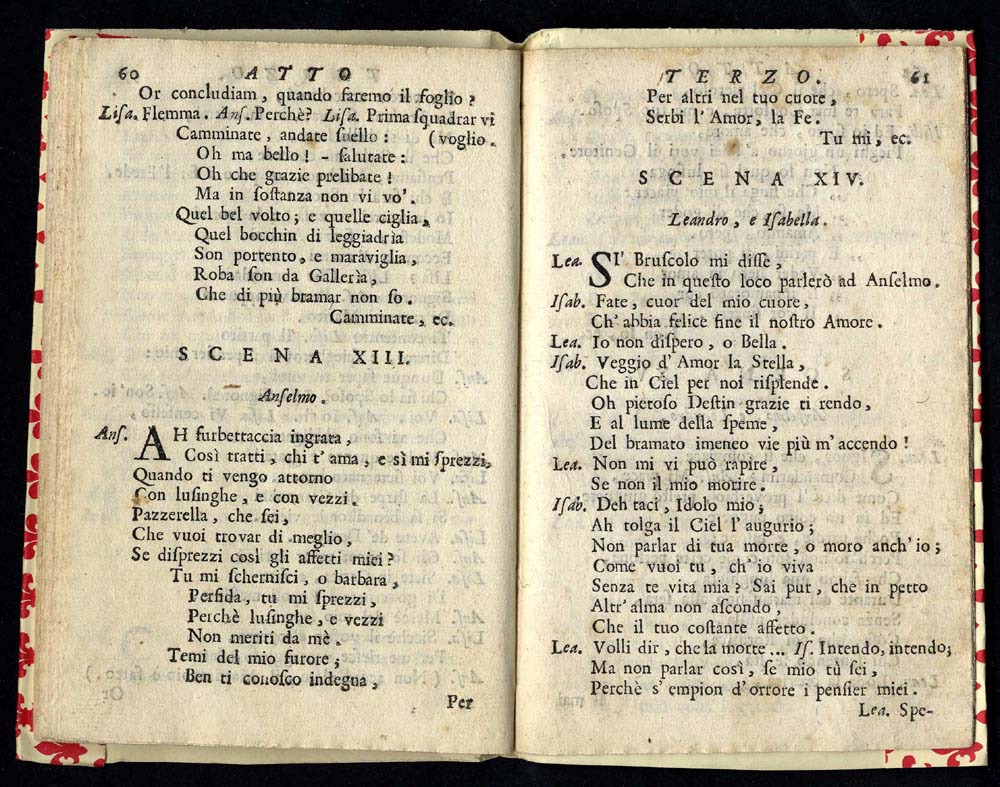 60 ATTO
Or concludiam, quando faremo il foglio?
Lisa. Flemma. Ans. Perchè? Lisa. Prima squadrar vi
Camminate, andate suello: (voglio.
Oh ma bello! - salutate:
Oh che grazie prelibate!
Ma in sostanza non vi vo'.
Quel bel volto; e quelle ciglia,
Quel bocchin di leggiadrìa
Son portento, e maraviglia,
Roba son da Gallerìa,
Che di più bramar non so.
Camminate, ec.
SCENA XIII.
Anselmo.
Ans. AH furbettaccia ingrata,
Così tratti, chi t'ama, e sì mi sprezzi,
Quando ti vengo attorno
Con lusinghe, e con vezzi.
Pazzerella, che sei,
Che vuoi trovar di meglio,
Se disprezzi così gli affetti miei?
Tu mi schernisci, o barbara,
Perfida, tu mi sprezzi,
Perchè lusinghe, e vezzi
Non meriti da mè.
Temi del mio furore;
Ben ti conosco indegna,
Per
TERZO. 61
Per altri nel tuo cuore,
Serbi l'Amor, la Fe.
Tu mi, ec.
SCENA XIV.
Leandro, e Isabella.
Lea. SI' Bruscolo mi disse,
Che in questo loco parlerò ad Anselmo.
Isab. Fate, cuor del mio cuore,
Ch'abbia felice fine il nostro Amore.
Lea. Io non dispero, o Bella.
Isab. Veggio d'Amor la Stella,
Che in Ciel per noi risplende.
Oh pietoso Destin grazie ti rendo,
E al lume della speme,
Del bramato imeneo vie più m'accendo!
Lea. Non mi vi può rapire,
Se non il mio morire.
Isab. Deh taci, Idolo mio;
Ah tolga il Ciel l'augurio;
Non parlar di tua morte, o moro anch'io;
Come vuoi tu, ch'io viva
Senza te vita mia? Sai pur, che in petto
Altr'alma non ascondo,
Che il tuo costante affetto.
Lea. Volli dir, che la morte... Is. Intendo, intendo;
Ma non parlar così, se mio tù sei,
Perchè s'empion d'orrore i pensier miei.
Lea. Spe-